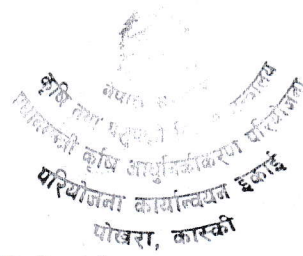 नेपाल
कृषि तथा पशुपन्छी मन्त्रालय
प्रधानमन्त्री कृषि आधुनिकीकरण परियोजना
परियोजना कार्यान्वयन इकाई
पोखरा, कास्की